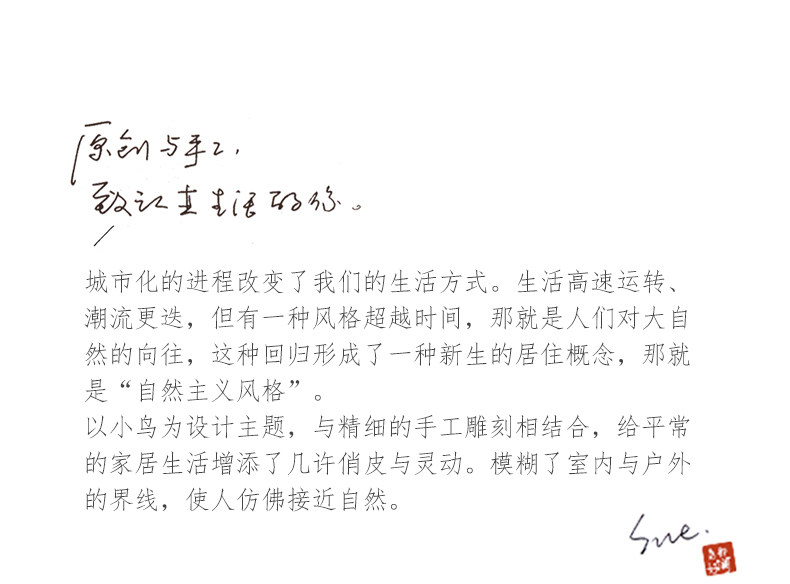 原创与手工，
致认真生活的你。
城市化的进程改变了我们的生活方式。生活高速运转、
潮流更迭，但有一种风格超越时间，那就是人们对大自
然的向往，这种回归形成了一种新生的居住概念，那就
是“自然主义风格”。
以小鸟为设计主题，与精细的手工雕刻相结合，给平常
的家居生活增添了几许俏皮与灵动。模糊了室内与户外
的界线，使人仿佛接近自然。
Sue.